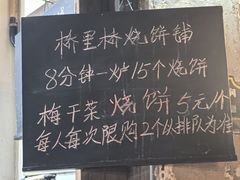 桥里桥烧饼铺
8分钟一炉15个烧饼
梅干菜烧饼5元/个
每人每次限购2个以排队为准